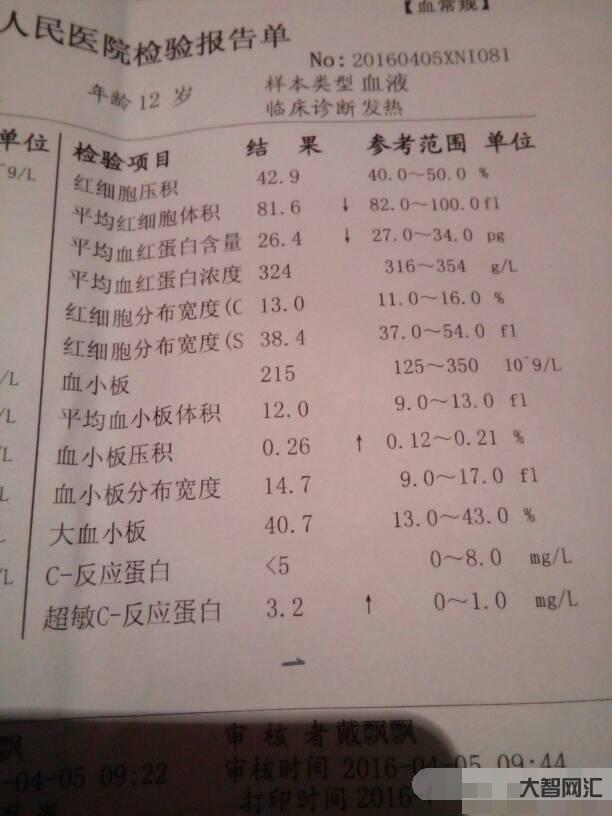 【血常规】
人民医院检验报告单
No: 20160405XNI081
年龄 12 岁 样本类型 血液
临床诊断 发热
单位 检验项目 结 果 参考范围 单位
^9/L 红细胞压积 42.9 40.0～50.0 %
平均红细胞体积 81.6 ↓ 82.0～100.0 fl
平均血红蛋白含量 26.4 ↓ 27.0～34.0 pg
平均血红蛋白浓度 324 316～354 g/L
红细胞分布宽度(C 13.0 11.0～16.0 %
红细胞分布宽度(S 38.4 37.0～54.0 fl
/L 血小板 215 125～350 10^9/L
/L 平均血小板体积 12.0 9.0～13.0 fl
/L 血小板压积 0.26 ↑ 0.12～0.21 %
/L 血小板分布宽度 14.7 9.0～17.0 fl
大血小板 40.7 13.0～43.0 %
/L C-反应蛋白 <5 0～8.0 mg/L
超敏C-反应蛋白 3.2 ↑ 0～1.0 mg/L
1
飘 审 核 者 戴飘飘
-04-05 09:22 审核时间 2016-04-05 09:44
打印时间 2016
大智网汇